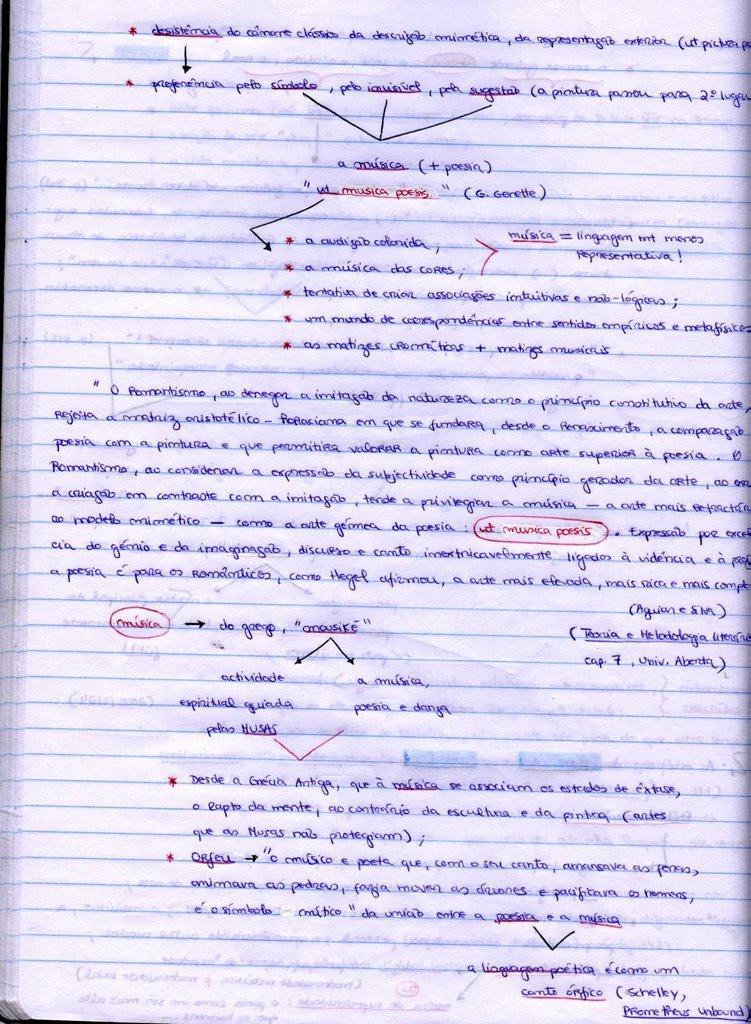 * desistência do cânone clássico da descrição mimética, da representação exterior (ut pictura po
* preferência pelo símbolo, pelo invisível, pela sugestão (a pintura passou para 2º lugar
a música (+ poesia)
"ut musica poesis" (G. Genette)
* a audição colorida;
* a música das cores;
música = linguagem mt menos
representativa!
* tentativa de criar associações intuitivas e não-lógicas;
* um mundo de correspondências entre sentidos empíricos e metafísicos
* as matizes cromáticas + matizes musicais
" O Romantismo, ao denegar a imitação da natureza como o princípio constitutivo da arte,
rejeita a matriz aristotélico-horaciana em que se fundara, desde o Renascimento, a comparação
poesia com a pintura e que permitira valorar a pintura como arte superior à poesia. O
Romantismo, ao considerar a expressão da subjectividade como princípio gerador da arte, ao
a criação em contraste com a imitação, tende a privilegiar a música — a arte mais refractár
ao modelo mimético — como a arte gémea da poesia: ut musica poesis. Expressão por exce
cia do génio e da imaginação, discurso e canto inextricavelmente ligados à vidência e à prof
a poesia é para os Românticos, como Hegel afirmou, a arte mais elevada, mais rica e mais comple
(Aguiar e Silva)
(Teoria e Metodologia Literári
cap. 7, Univ. Aberta)
música → do grego, "mousikê"
actividade
espiritual guiada
pelas MUSAS
a música,
poesia e dança
* Desde a Grécia Antiga, que à música se associam os estados de êxtase,
o rapto da mente, ao contrário da escultura e da pintura (artes
que as Musas não protegiam);
* Orfeu → "o músico e poeta que, com o seu canto, amansava as feras,
animava as pedras, fazia mover as árvores e pacificava os homens,
é o símbolo mítico" da união entre a poesia e a música
a linguagem poética é como um
canto órfico (Schelley,
Prometheus Unbound)